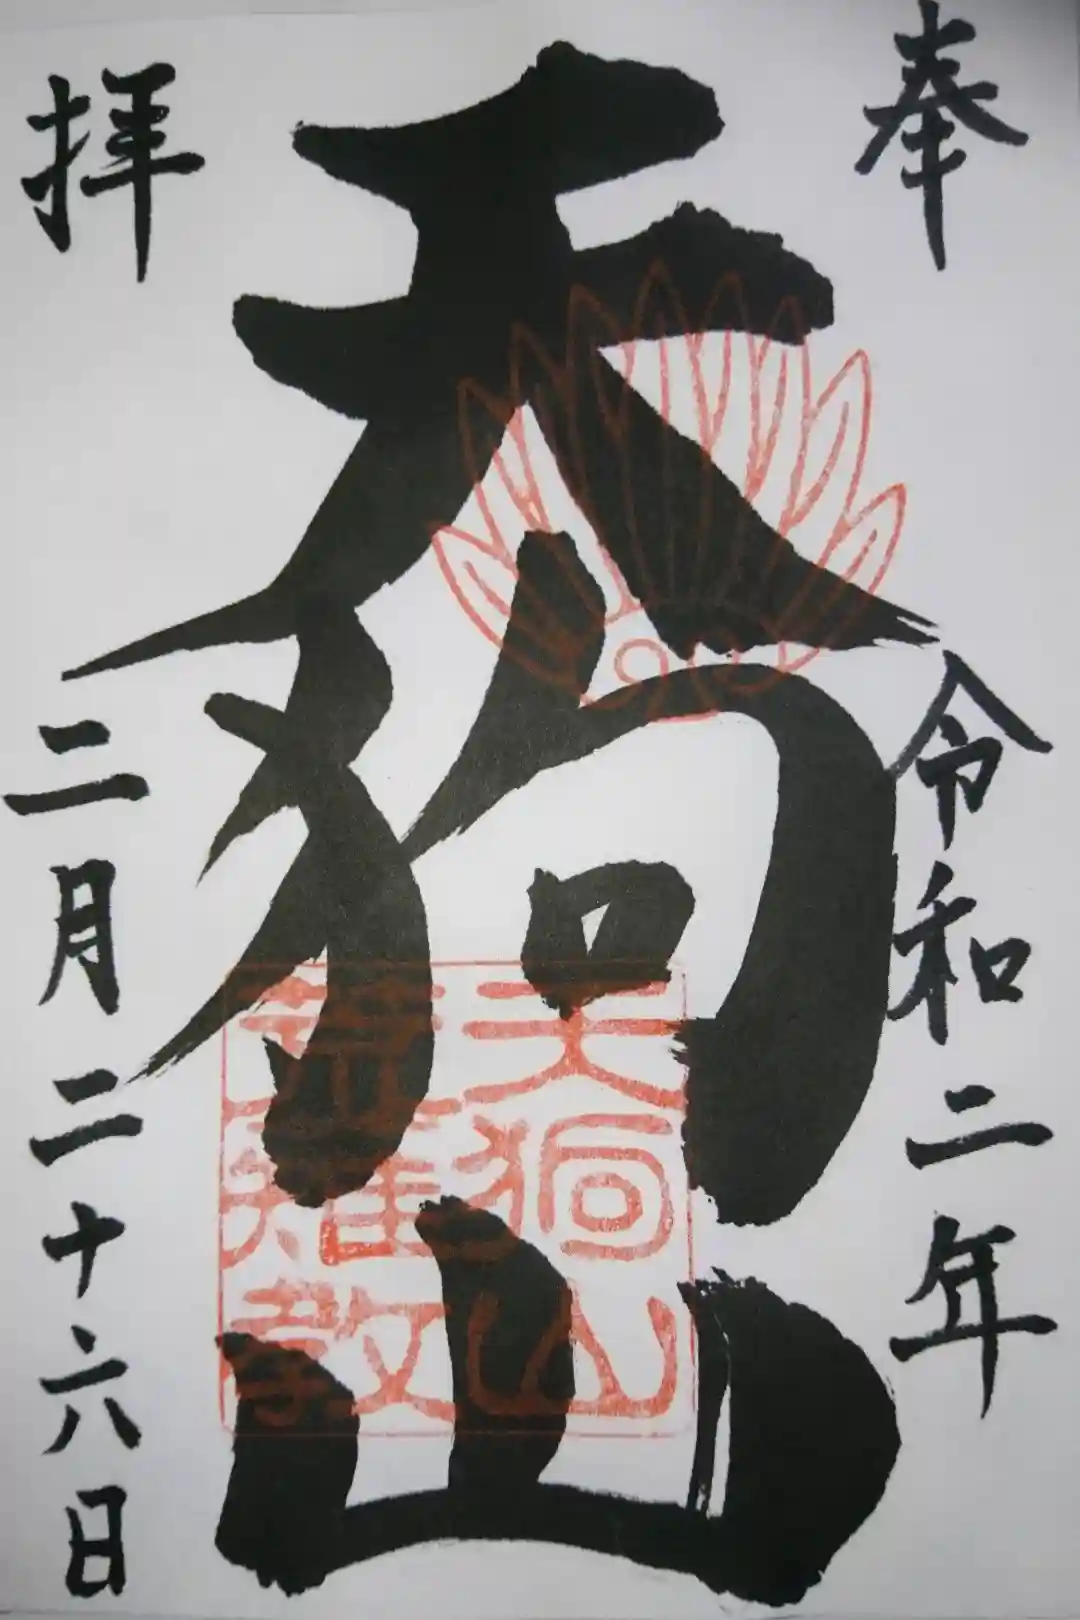 奉
拝
天狗山
令和二年
二月二十六日
天狗山